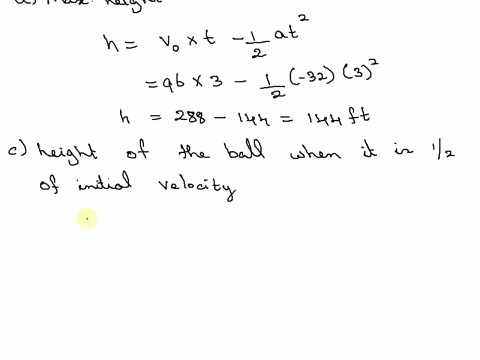 h = v₀ × t - 1/2 at²
= 96 × 3 - 1/2 (-32) (3)²
h = 288 - 144 = 144 ft
c) height of the ball when it is 1/2
of initial velocity